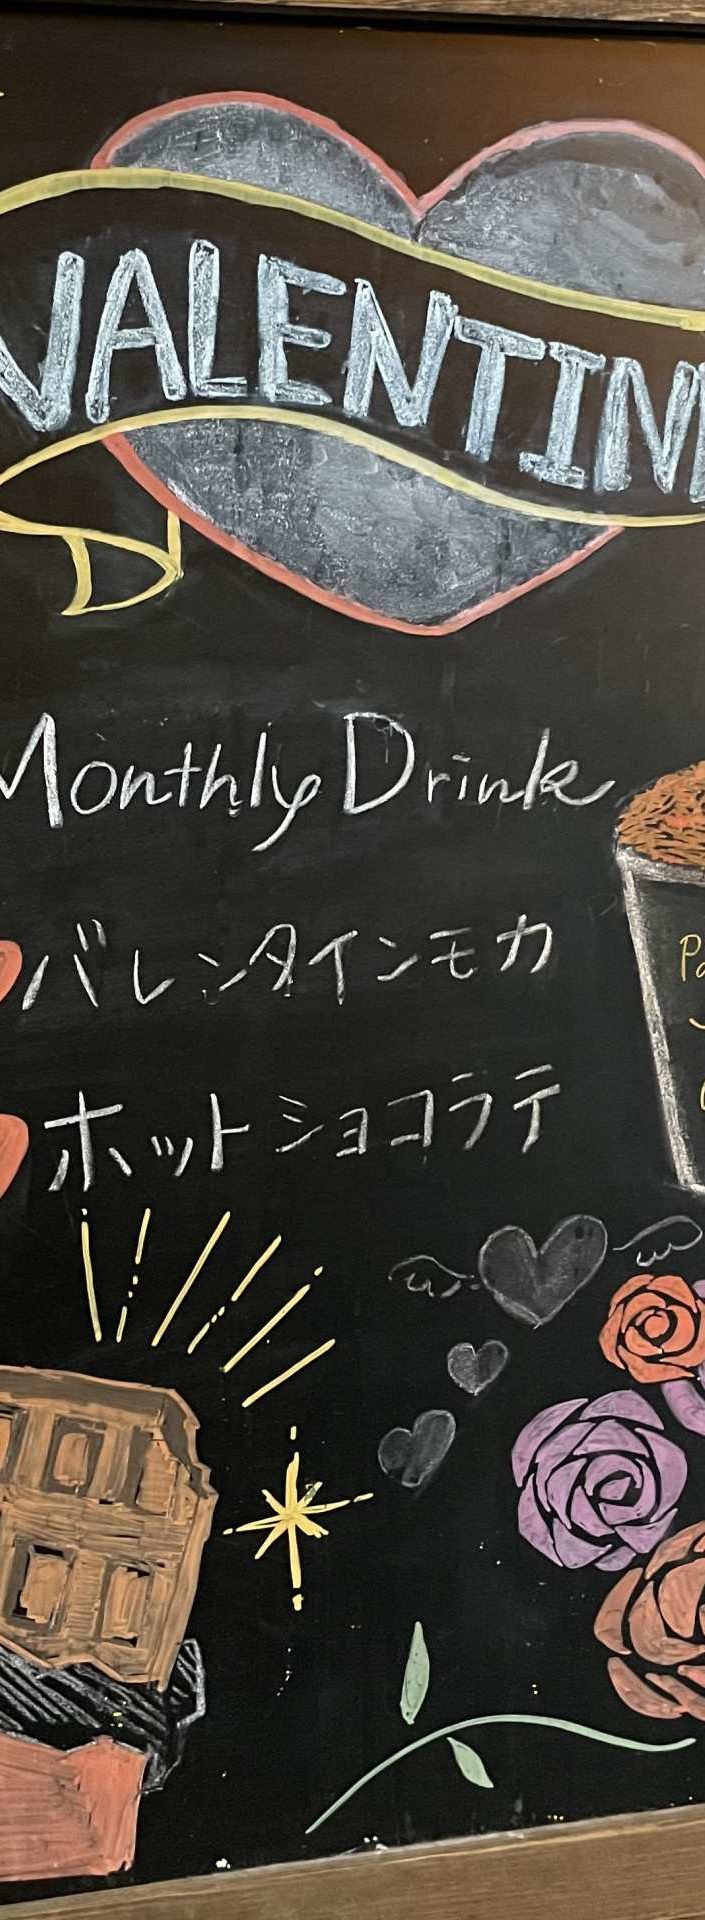 VALENTIN
Monthly Drink
バレンタインモカ
ホットショコラテ